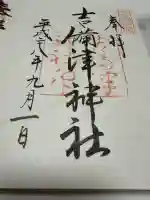 奉拝
吉備津神社
平成廿八年九月一日